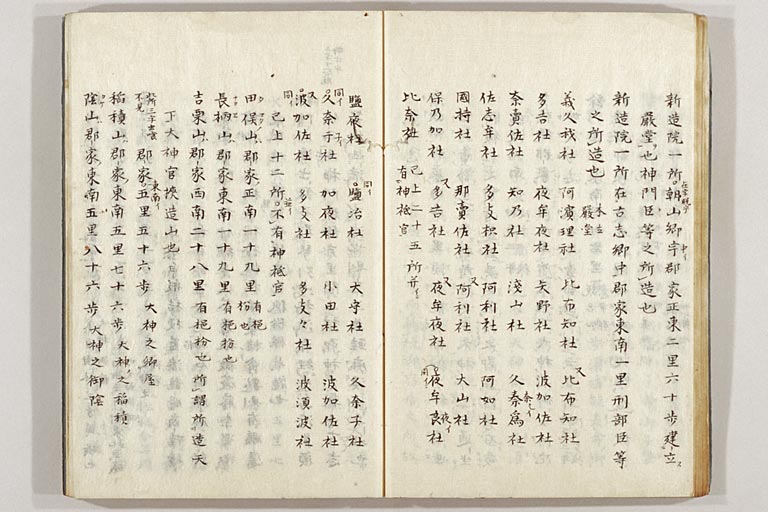 新造院一所朝山郷中郡家正東二里六十歩建立
嚴堂也神門臣等之所造也
新造院一所在古志郷中郡家東南一里刑部臣等
之所造也 本立嚴堂
美久我社 阿濵理社 比布知社 又比布知社
多吉社 夜牟夜社 矢野社 波加佐社
奈賣佐社 知乃社 淺山社 久奈爲社
佐志牟社 多支枳社 阿利社 阿如社
國村社 那賣佐社 又阿利社 大山社
保乃加社 又多吉社 夜牟夜社 夜牟夜社
比奈社 已上二十五所并有神祇官
塩夜社 塩冶社 大守社 久奈子社
久奈子社 加夜社 小田社 波加佐社
波加佐社 多支社 多支々社 波湏波社
已上十二所並不有神祇官
田俣山郡家正南一十九里 有柂枌也
長柄山郡家東南一十九里 有柂枌也
吉栗山郡家西南二十八里 有柂枌也所謂所造天
下大神宮挍造山也
郡家東南五里五十六歩 大神之御屋
稲積山郡家東南五里七十六歩 大神之稲積
陰山郡家東南五里八十六歩 大神之御陰